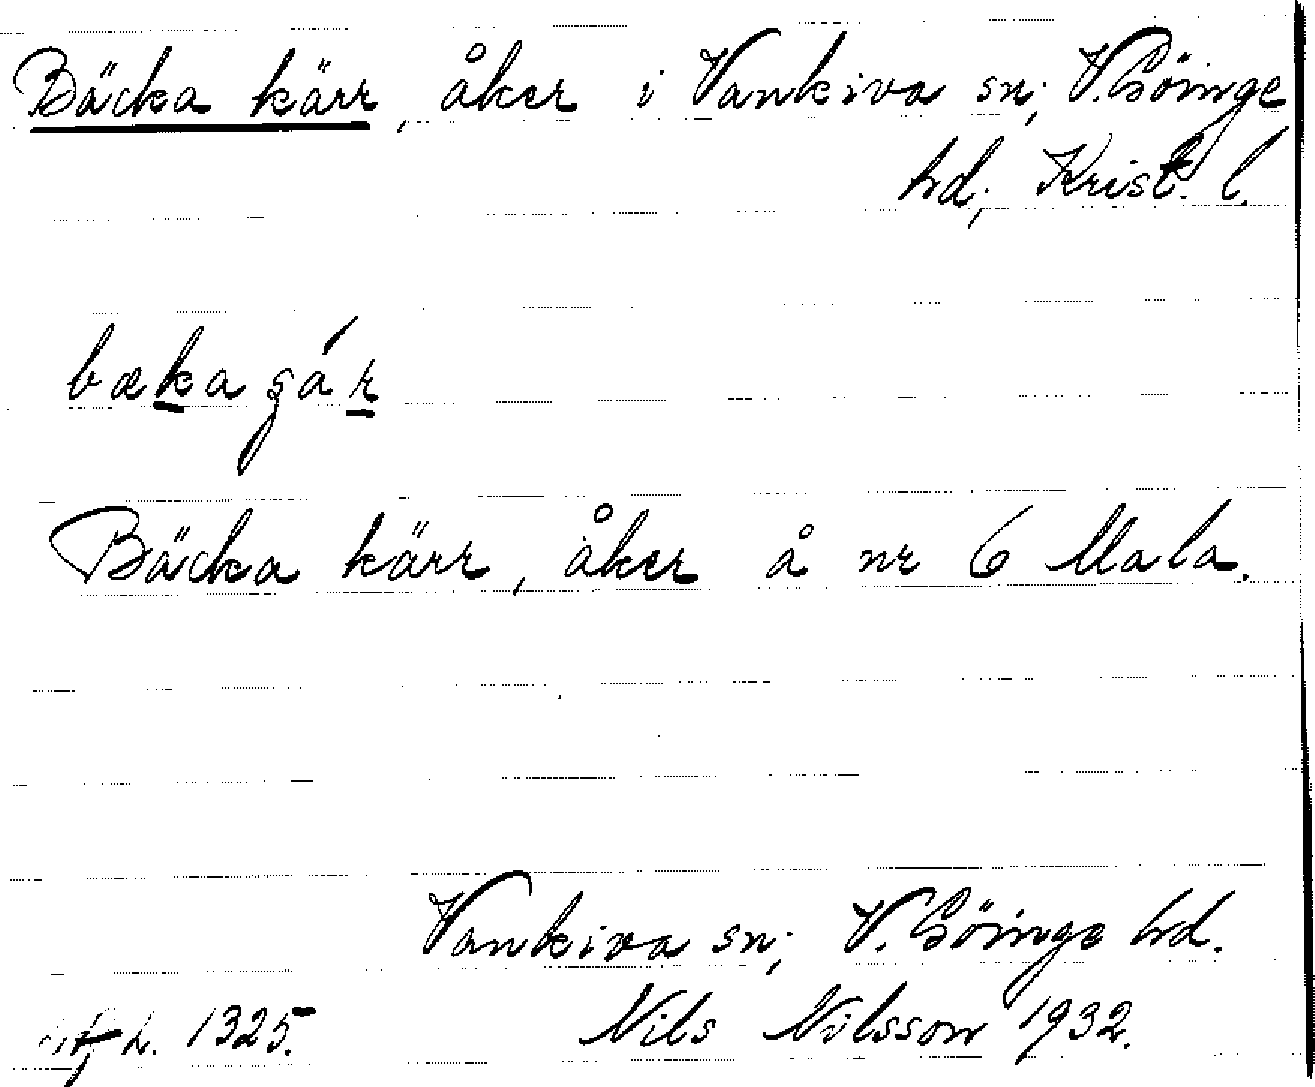 Bäcka kärr, åker i Vankiva sn; V. Göinge
hd; Krist. l.
bækagár
Bäcka kärr, åker å nr 6 Mala.
Vankiva sn; V. Göinge hd.
1325. Nils Nilsson 1932.